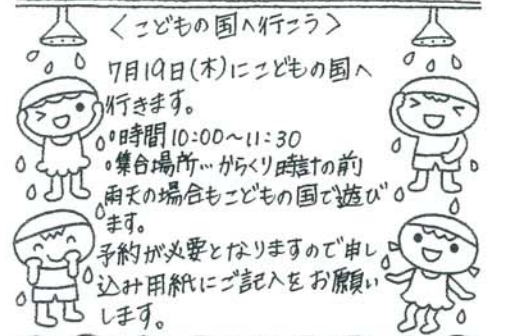 〈こどもの国へ行こう〉
7月19日(木)にこどもの国へ
行きます。
•時間 10:00〜11:30
•集合場所…からくり時計の前
雨天の場合もこどもの国で遊び
ます。
予約が必要となりますので申し
込み用紙にご記入をお願い
します。